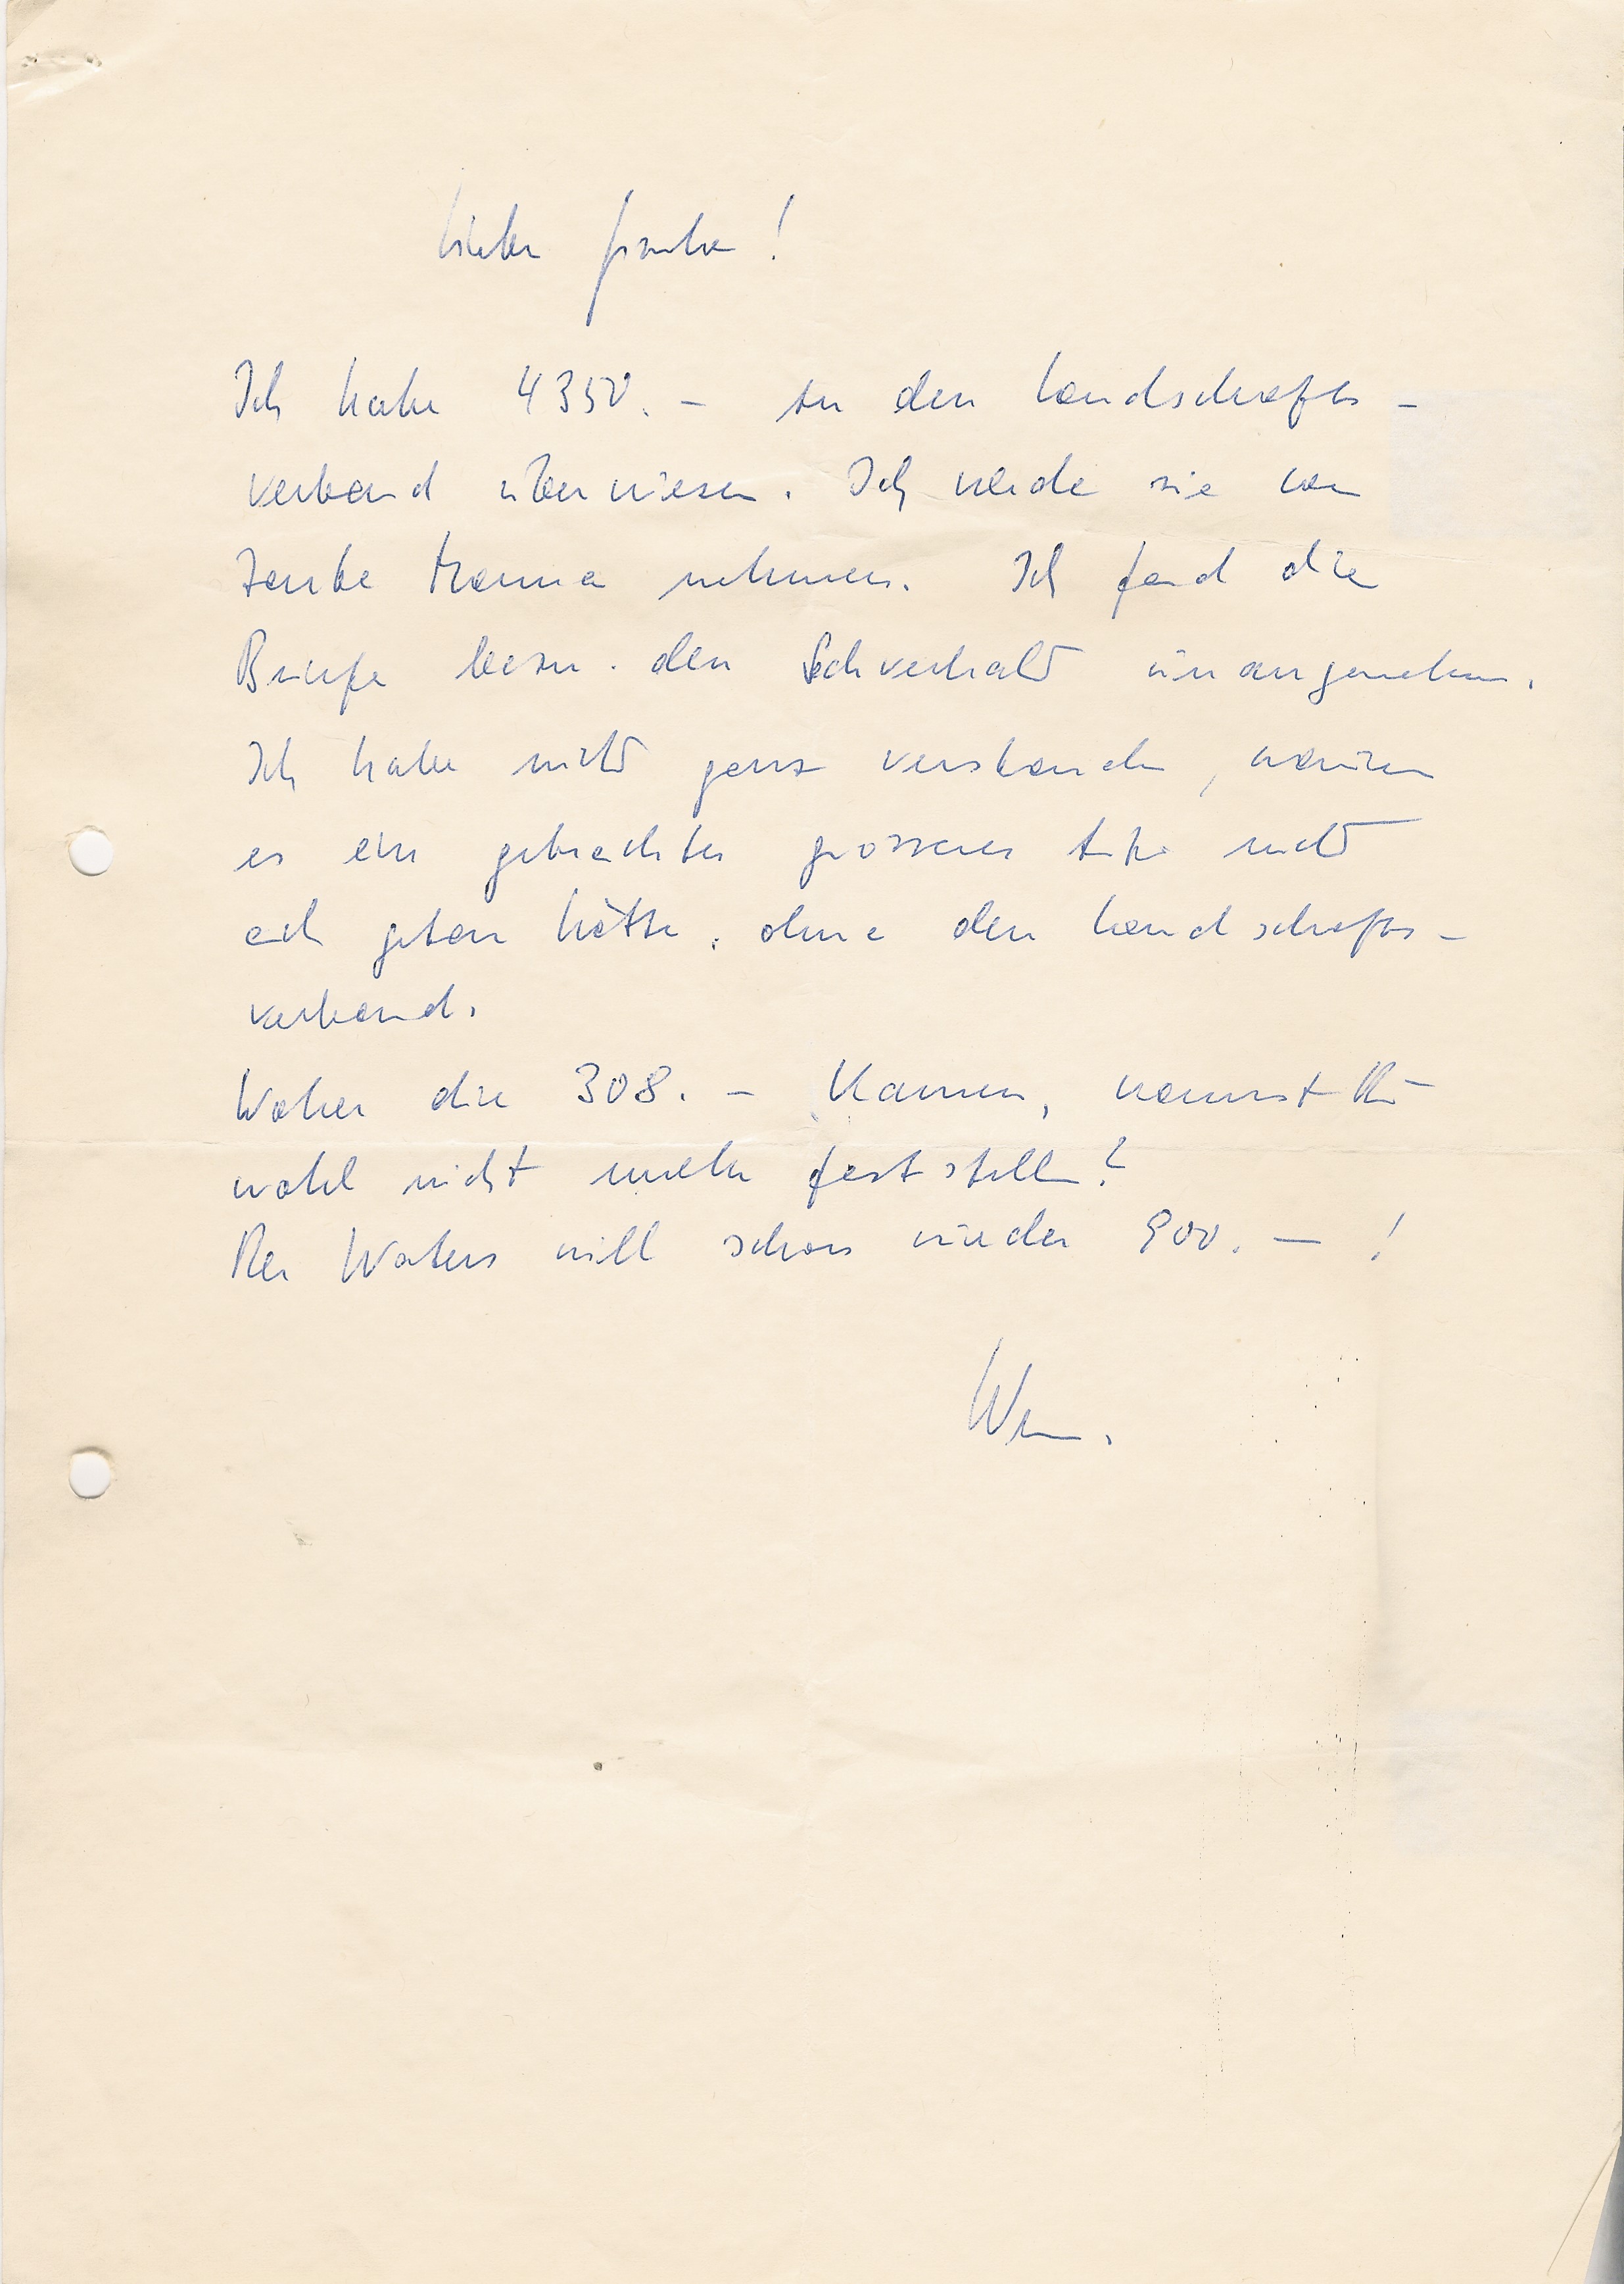 Lieber
Ich habe 4350.- an den Landschafts-
verband überwiesen. Ich werde sie von
Tante Hanna nehmen. Ich fand die
Briefe bezw. den Sachverhalt unangenehm.
Ich habe nicht ganz verstanden, warum
es ein gebrachtes grösseres nicht
auch getan hätte, ohne den Landschafts-
verband.
Woher die 308.- kamen, kannst Du
wohl nicht mehr feststellen?
Der Waters will schon wieder 900.- !